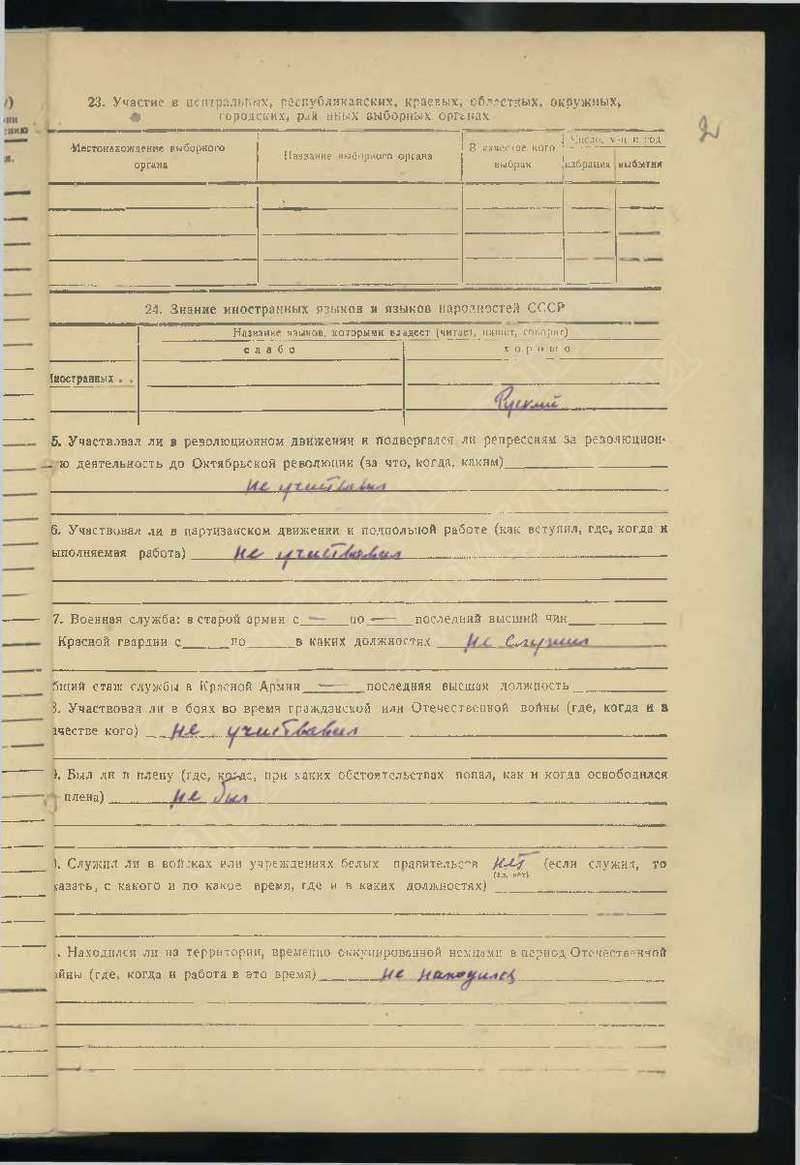 2
23. Участие в центральных, республиканских, краевых, областных, окружных,
городских, рай нных выборных органах
Местонахождение выборного
органа
Название выборного органа
В качестве кого
выбран
Число, м-ц и год
избрания
выбытия
24. Знание иностранных языков и языков народностей СССР
Название языков, которыми владеет (читает, пишет, говорит)
слабо
хорошо
Иностранных . .
Руский
5. Участвовал ли в революционном движении и подвергался ли репрессиям за революцион-
ю деятельность до Октябрьской революции (за что, когда, каким)
не участвовал
6. Участвовал ли в партизанском движении и подпольной работе (как вступил, где, когда и
ыполняемая работа) не участвовал
7. Военная служба: в старой армии с — по — последний высший чин
Красной гвардии с по в каких должностях не служил
бщий стаж службы в Красной Армии — последняя высшая должность
8. Участвовал ли в боях во время гражданской или Отечественной войны (где, когда и в
ачестве кого) не участвовал
). Был ли в плену (где, когда, при каких обстоятельствах попал, как и когда освободился
плена) не был
). Служил ли в войсках или учреждениях белых правительств нет (если служил, то
(да, нет)
казать, с какого и по какое время, где и в каких должностях)
. Находился ли на территории, временно оккупированной немцами в период Отечественной
йны (где, когда и работа в это время) не находился